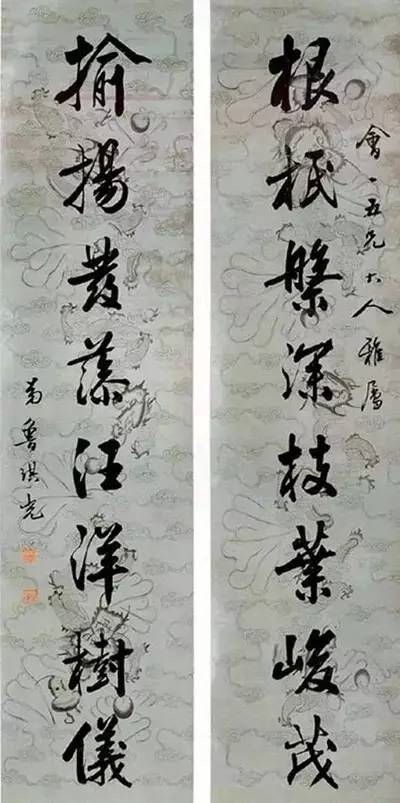 會一五兄大人雅屬
根柢槃深枝葉峻茂
揄揚發藻汪洋樹儀
弟魯琪光